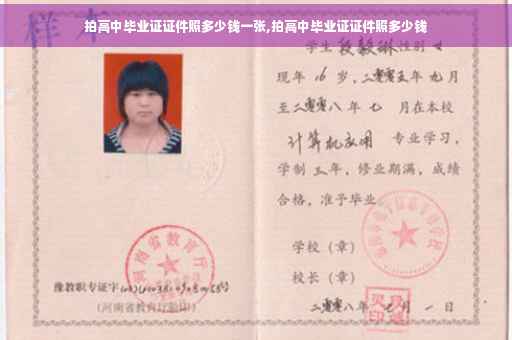 拍高中毕业证证件照多少钱一张,拍高中毕业证证件照多少钱
样本
学生 段毅琳 性别 女
现年 16 岁，二零零五年 九 月
至二零零八 年 七 月在本校
计算机应用 专业学习，
学制 三 年，修业期满，成绩
合格，准予毕业
学校（章）
校长（章）
二零零八年 月 一 日
河南省教育厅
豫教职专证字
（河南省教育厅验印）